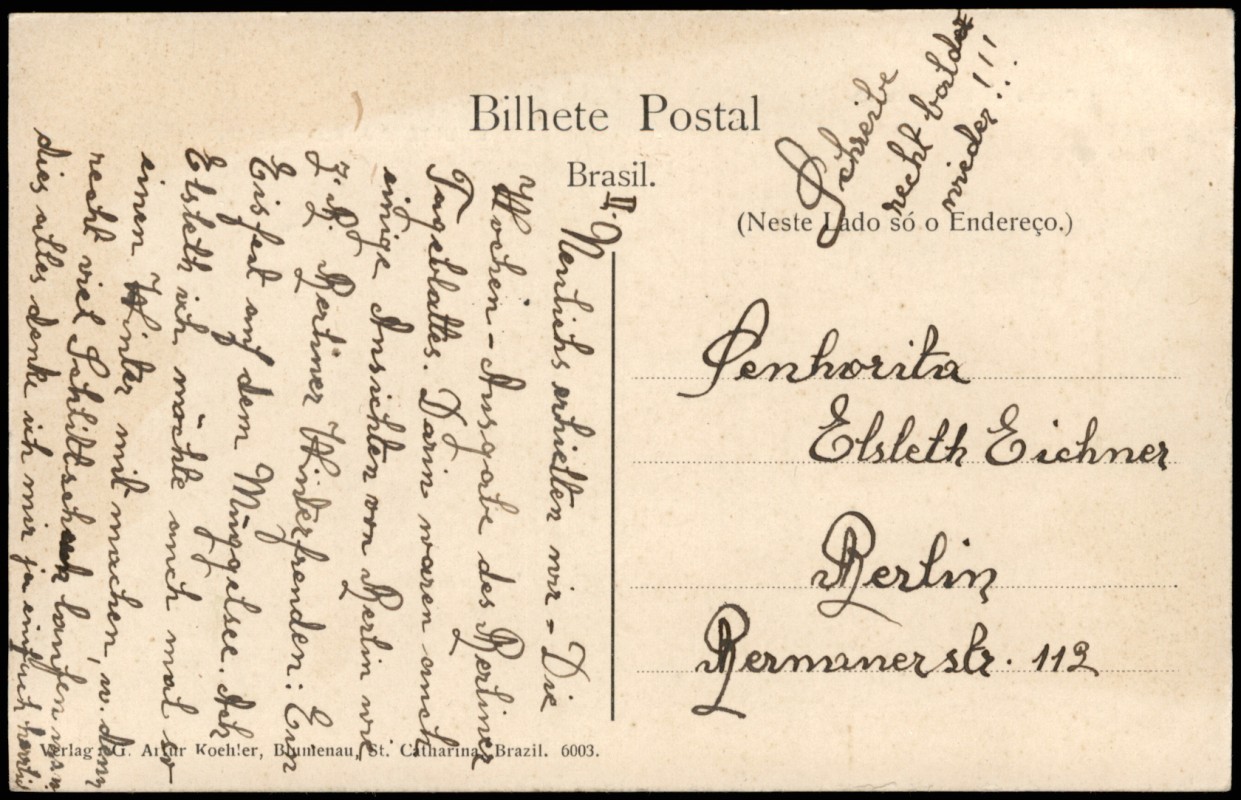 Bilhete Postal
Brasil.
(Neste Lado só o Endereço.)
Schreibe
recht balder
wieder!!!
II.
Neulichs erhielten wir = Die
Wochen-Ausgabe des Berliner
Tageblattes. Darin waren auch
einige Ansichten von Berlin wi
z. B. Berliner Winterfreuden: Ein
Eisfest auf dem Müggelsee. Ach
Elsleth ich möchte auch mal so
einen Winter mit machen, u. dann
recht viel Schlittschuh laufen
dies alles denke ich mir ja einfach
Senhorita
Elsleth Eichner
Berlin
Bermanerstr. 112
Verlag: G. Artur Koehler, Blumenau, St. Catharina, Brazil. 6003.